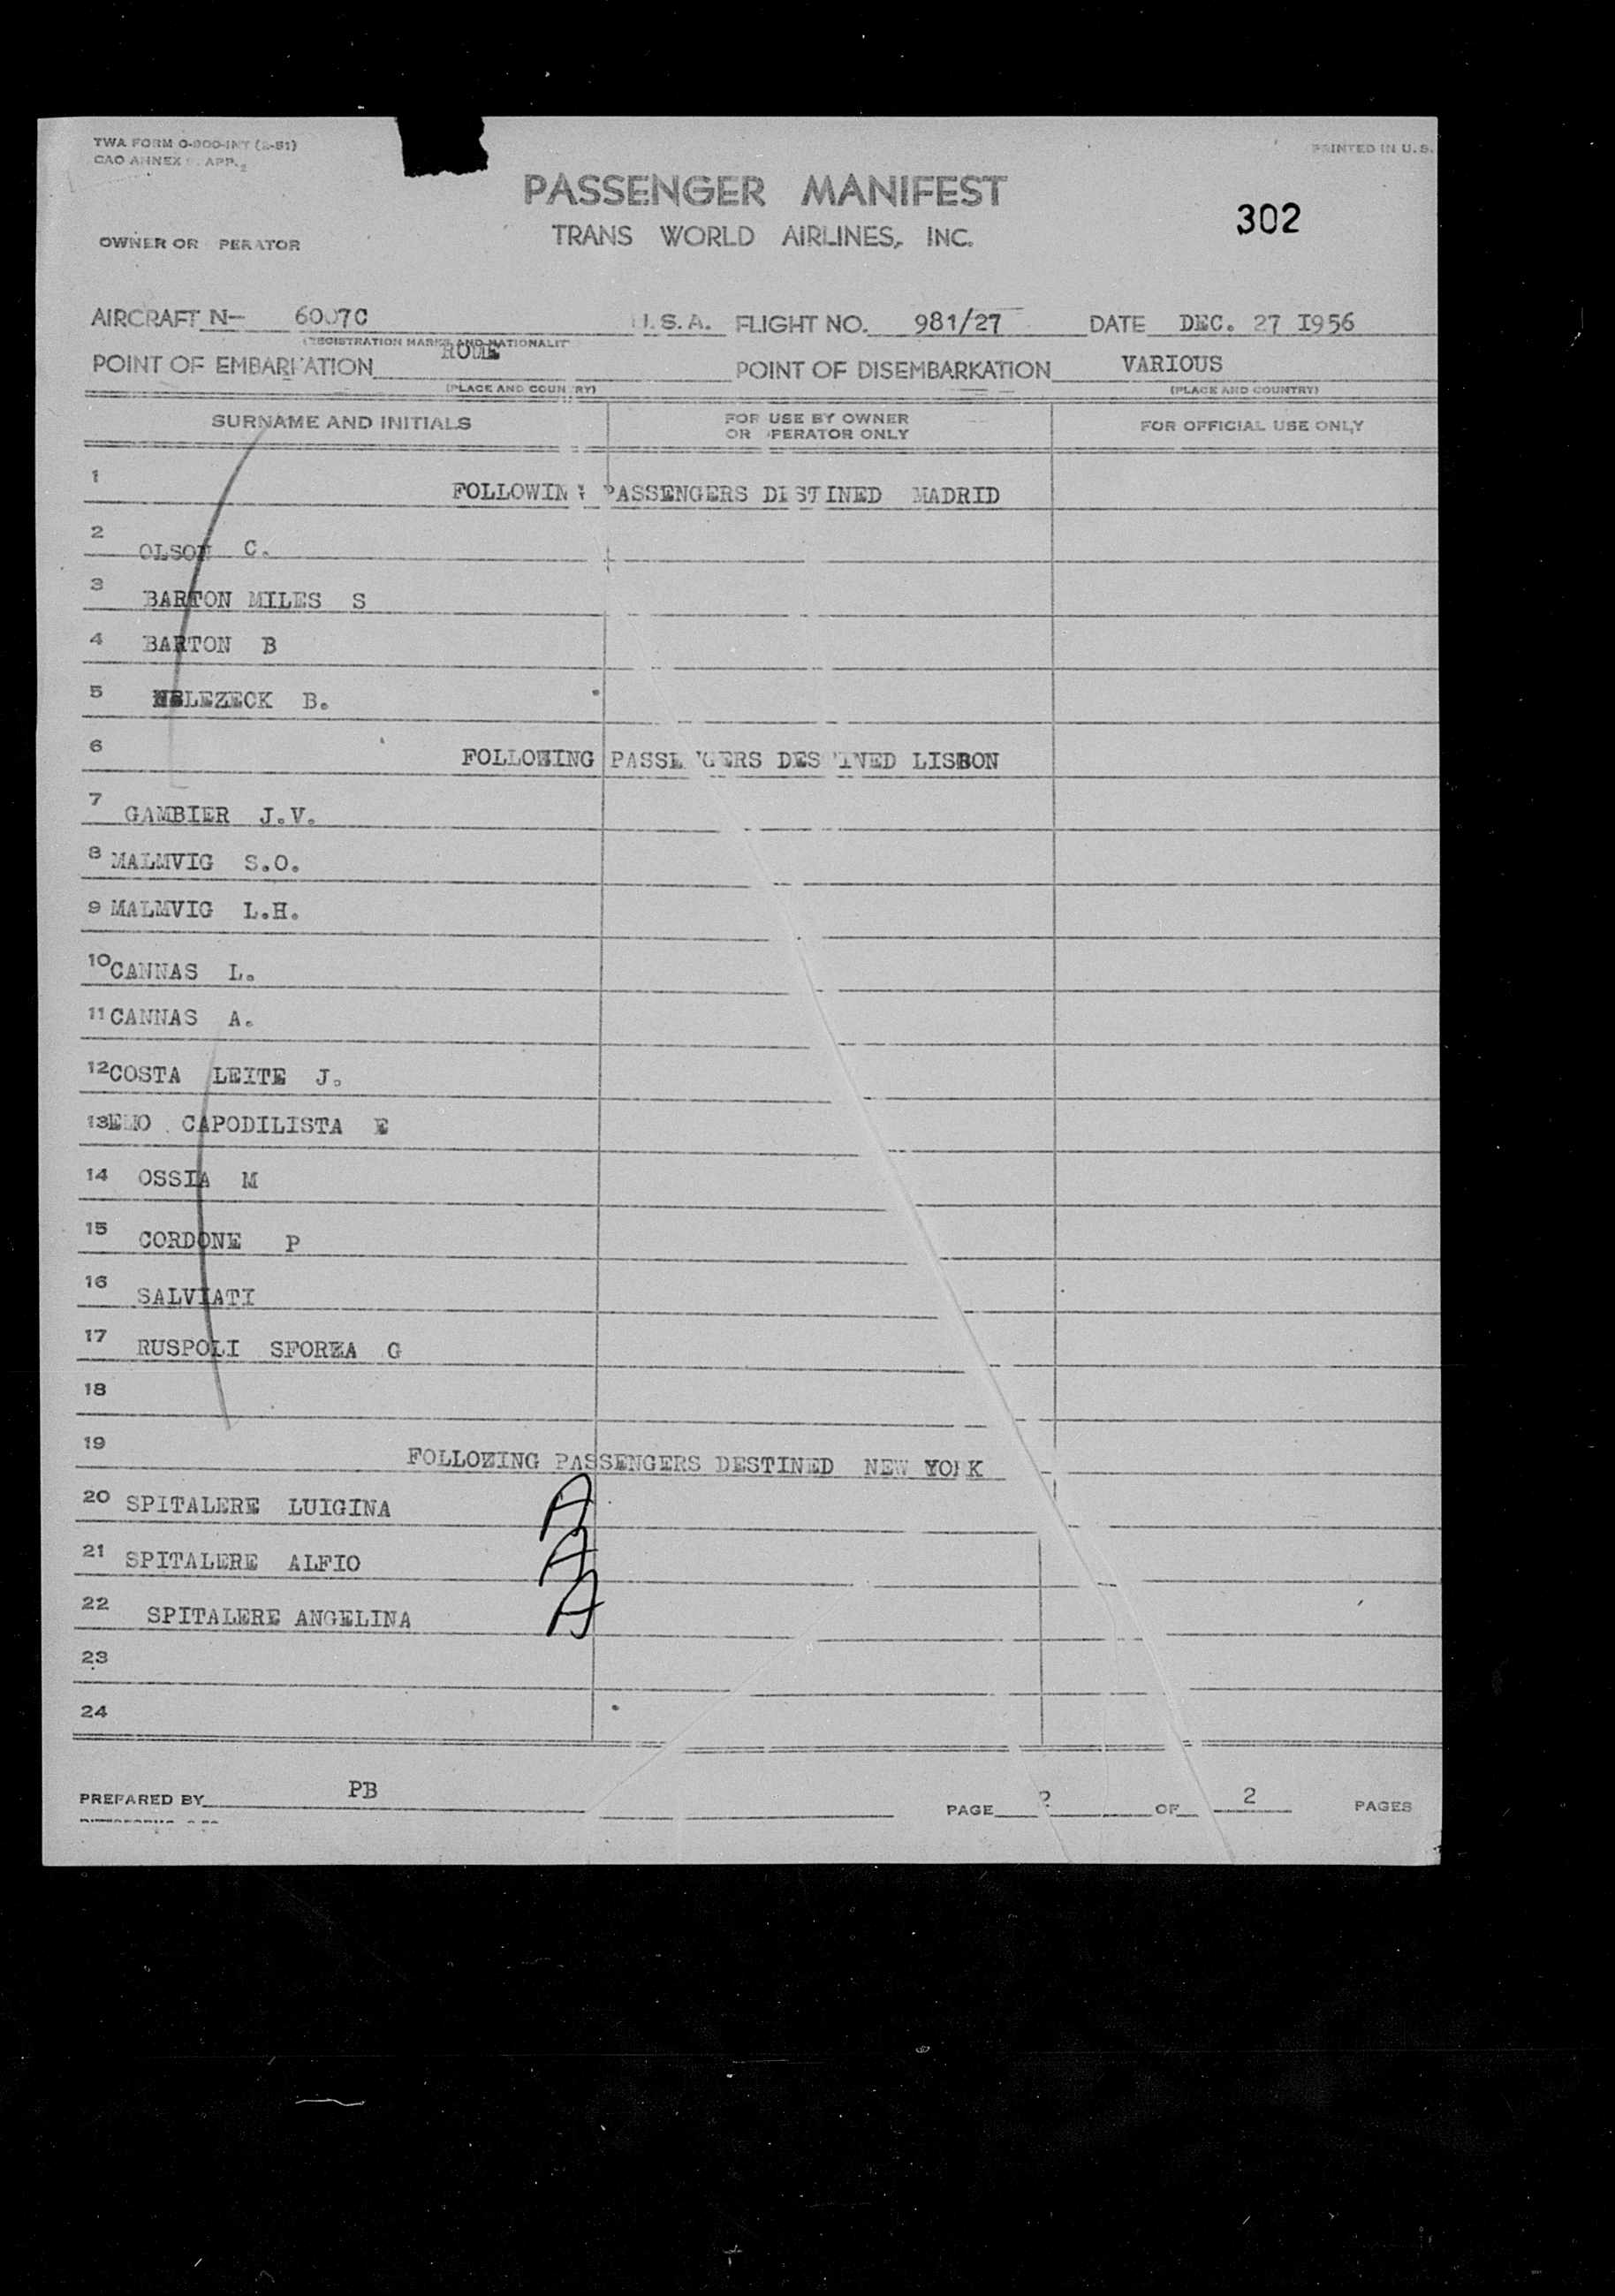 TWA FORM O-900-INT (2-51)
PRINTED IN U.S.
CAO ANNEX 9 APP. 2
PASSENGER MANIFEST
302
TRANS WORLD AIRLINES, INC.
OWNER OR PERATOR
AIRCRAFT N- 6007C U.S.A. FLIGHT NO. 981/27 DATE DEC. 27 I956
(REGISTRATION MARKS AND NATIONALIT
POINT OF EMBARKATION ROME POINT OF DISEMBARKATION VARIOUS
(PLACE AND COUNTRY) (PLACE AND COUNTRY)
SURNAME AND INITIALS FOR USE BY OWNER OR PERATOR ONLY FOR OFFICIAL USE ONLY
1 FOLLOWING PASSENGERS DISTINED MADRID
2 OLSON C.
3 BARTON MILES S
4 BARTON B
5 LEZECK B.
6 FOLLOWING PASSENGERS DESTINED LISBON
7 GAMBIER J.V.
8 MALMVIG S.O.
9 MALMVIG L.H.
10 CANNAS L.
11 CANNAS A.
12 COSTA LEITE J.
13 EMO CAPODILISTA E
14 OSSIA M
15 CORDONE P
16 SALVIATI
17 RUSPOLI SFORZA G
18
19 FOLLOWING PASSENGERS DESTINED NEW YORK
20 SPITALERE LUIGINA A
21 SPITALERE ALFIO A
22 SPITALERE ANGELINA A
23
24
PREPARED BY PB PAGE 2 OF 2 PAGES